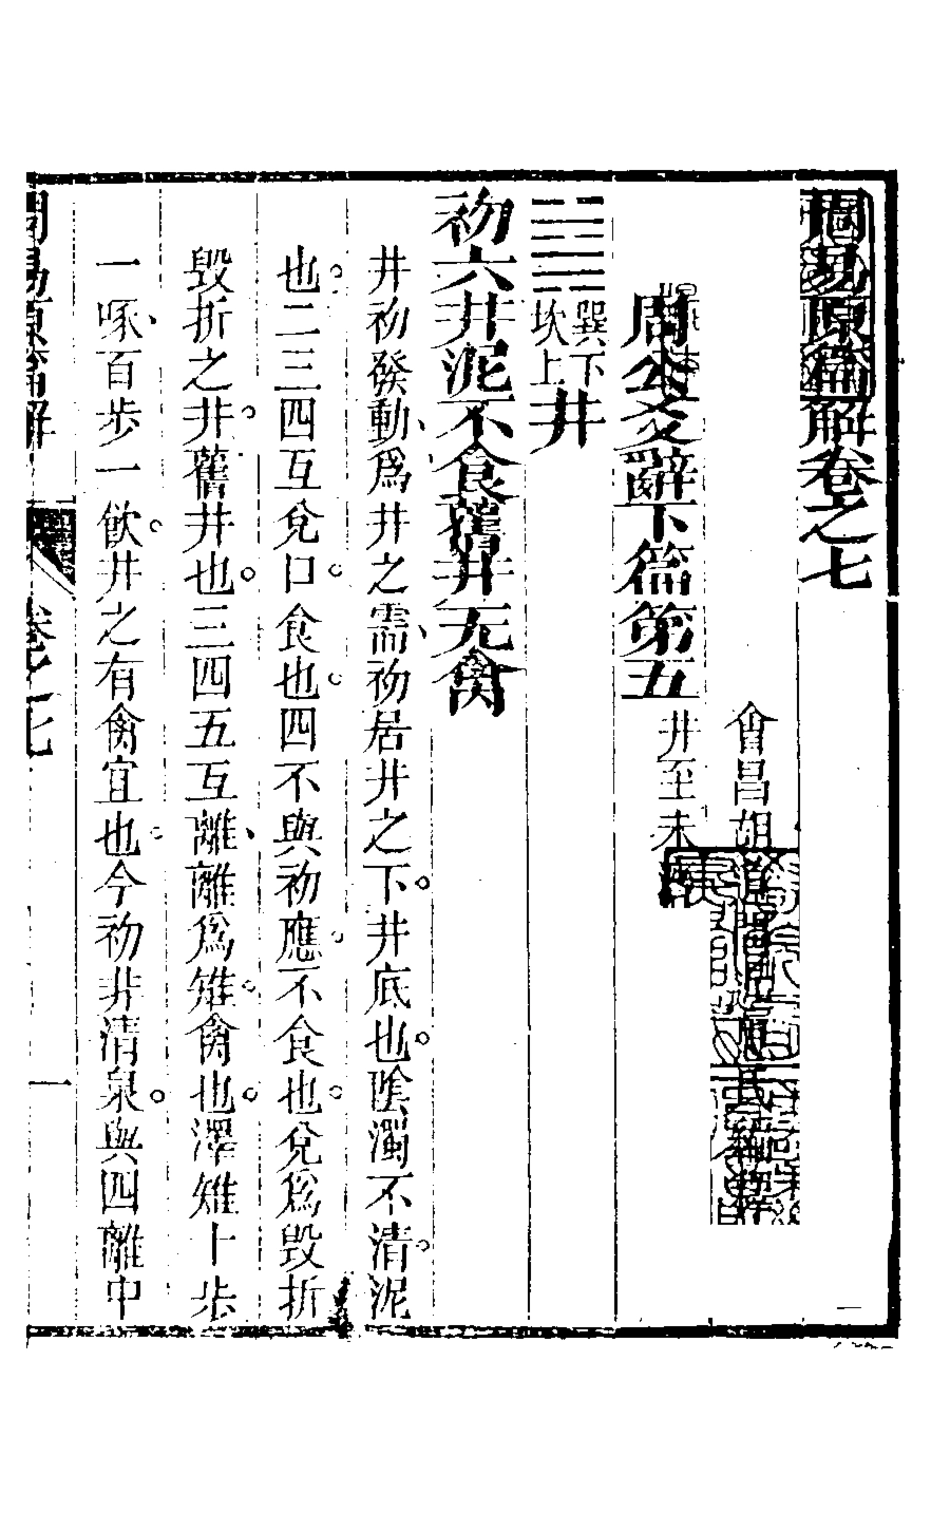 周易原篇解卷之七
會昌胡
周公爻辭下篇第五 井至未濟
巽下坎上 井
初六井泥不食舊井无禽
井初發動爲井之需初居井之下井底也陰濁不清泥
也二三四互兌口食也四不與初應不食也兌爲毀折
毀折之井舊井也三四五互離離爲雉禽也澤雉十步
一啄百步一飲井之有禽宜也今初井清泉與四離中
周易原篇解
卷之七
一